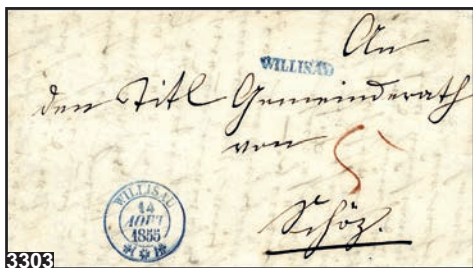 An
WILLISAU
den Titl Gemeinderath
von
5
Schöz.
WILLISAU
14
AOUT
1855
3303